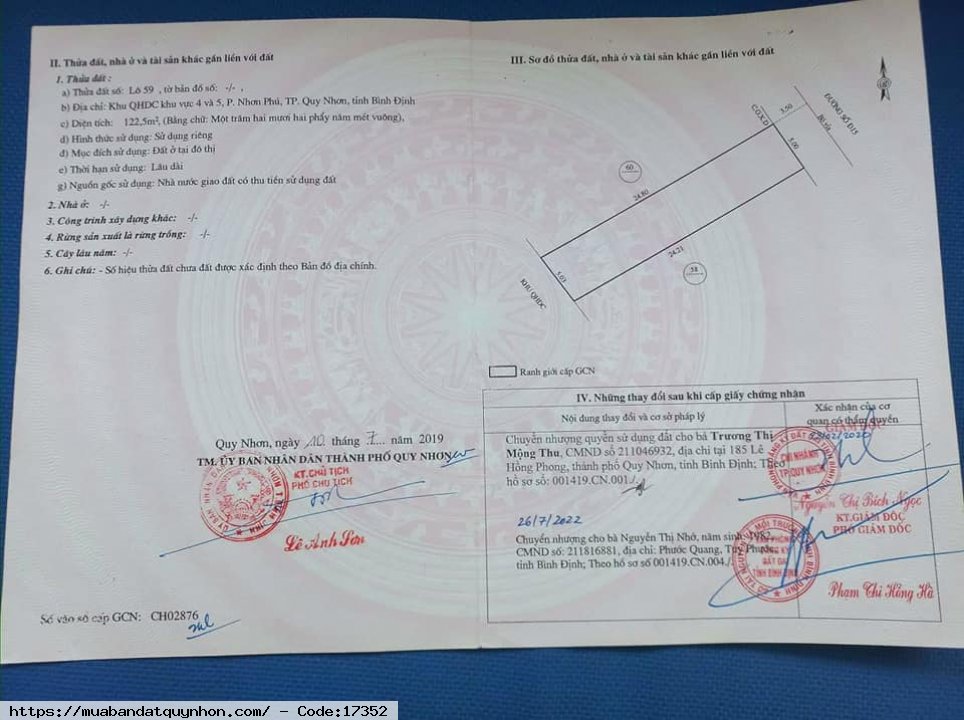 II. Thửa đất, nhà ở và tài sản khác gắn liền với đất
1. Thửa đất :
a) Thửa đất số: Lô 59 , tờ bản đồ số: -/- ,
b) Địa chỉ: Khu QHDC khu vực 4 và 5, P. Nhơn Phú, TP. Quy Nhơn, tỉnh Bình Định
c) Diện tích: 122,5m², (Bằng chữ: Một trăm hai mươi hai phẩy năm mét vuông),
d) Hình thức sử dụng: Sử dụng riêng
đ) Mục đích sử dụng: Đất ở tại đô thị
e) Thời hạn sử dụng: Lâu dài
g) Nguồn gốc sử dụng: Nhà nước giao đất có thu tiền sử dụng đất
2. Nhà ở: -/-
3. Công trình xây dựng khác: -/-
4. Rừng sản xuất là rừng trồng: -/-
5. Cây lâu năm: -/-
6. Ghi chú: - Số hiệu thửa đất chưa đất được xác định theo Bản đồ địa chính.
Quy Nhơn, ngày 10 tháng 7 năm 2019
TM. ỦY BAN NHÂN DÂN THÀNH PHỐ QUY NHƠN
KT.CHỦ TỊCH
PHÓ CHỦ TỊCH
Lê Anh Sơn
Số vào sổ cấp GCN: CH02876
III. Sơ đồ thửa đất, nhà ở và tài sản khác gắn liền với đất
ĐƯỜNG SỐ Đ15
3.50
CGXD
5.00
60
24.80
24.21
58
5.03
KHU QHDC
Ranh giới cấp GCN
IV. Những thay đổi sau khi cấp giấy chứng nhận
Nội dung thay đổi và cơ sở pháp lý
Xác nhận của cơ
quan có thẩm quyền
Chuyển nhượng quyền sử dụng đất cho bà Trương Thị
Mộng Thu, CMND số 211046932, địa chỉ tại 185 Lê
Hồng Phong, thành phố Quy Nhơn, tỉnh Bình Định; Theo
hồ sơ số: 001419.CN.001./.
GIÁM ĐỐC
CHI NHÁNH
TP.QUY NHƠN
Nguyễn Thị Bích Ngọc
26/7/2022
Chuyển nhượng cho bà Nguyễn Thị Nhớ, năm sinh 1982
CMND số: 211816881, địa chỉ: Phước Quang, Tuy Phước,
tỉnh Bình Định; Theo hồ sơ số 001419.CN.004./.
KT.GIÁM ĐỐC
PHÓ GIÁM ĐỐC
Phạm Thị Hồng Hà
https://muabandatquynhon.com/ - Code:17352